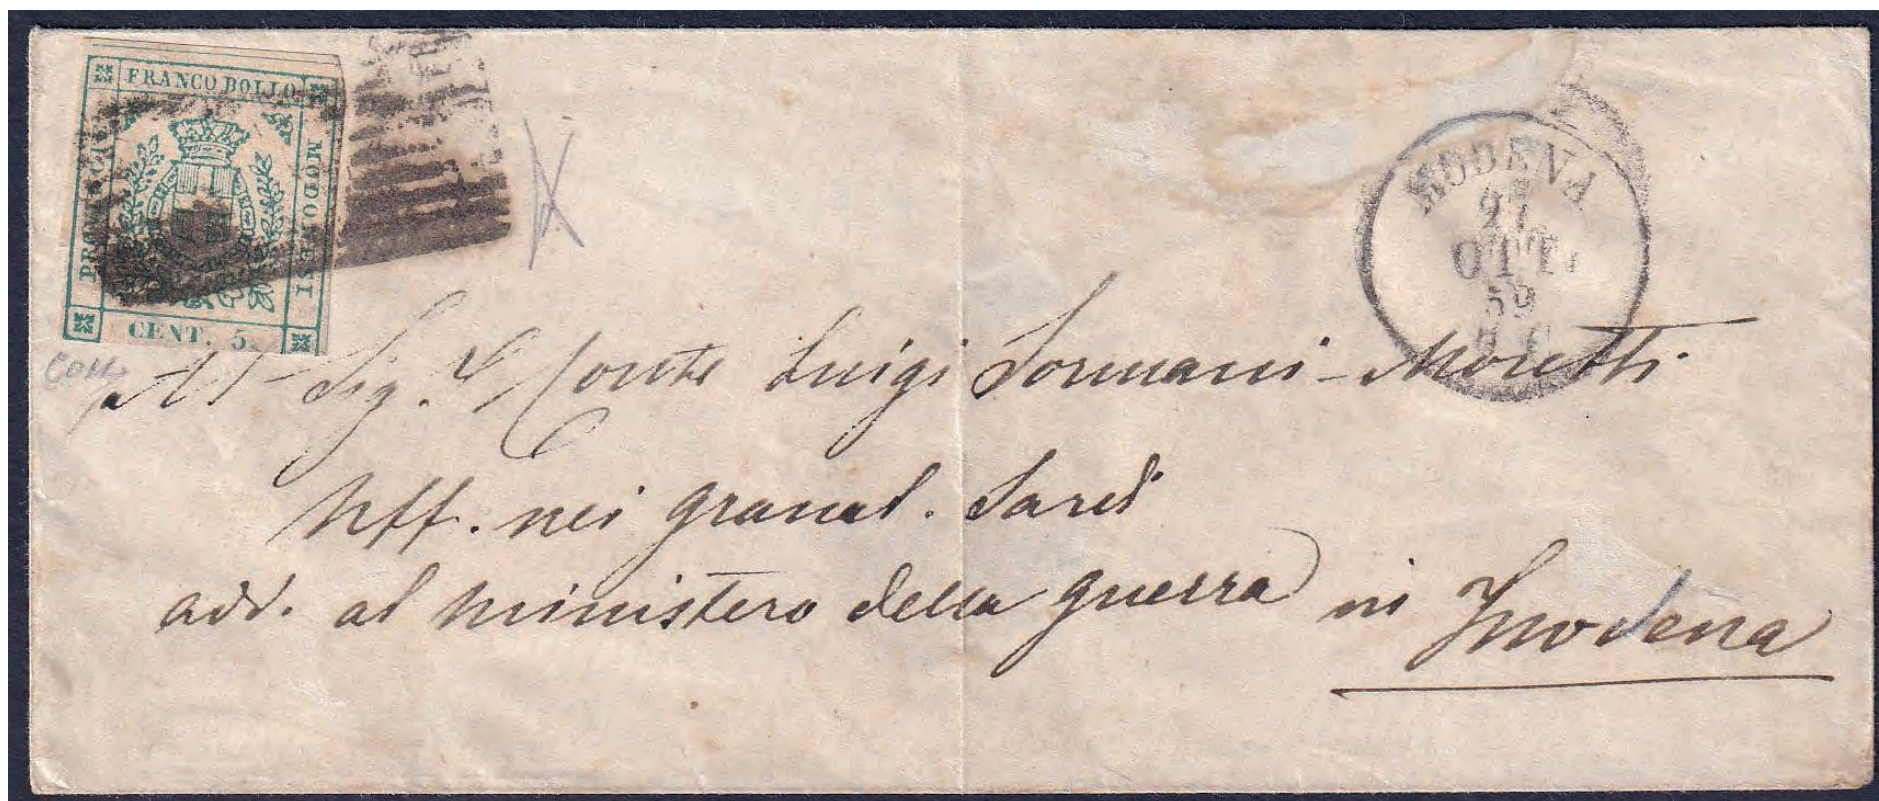 FRANCO BOLLO
PROVINCIE
MODONESI
CENT. 5.
MODENA
27
OTT.
59
Al Sig. Conte Luigi Sormani-Moretti
Uff. nei Granat. Sardi
add. al Ministero della Guerra in Modena